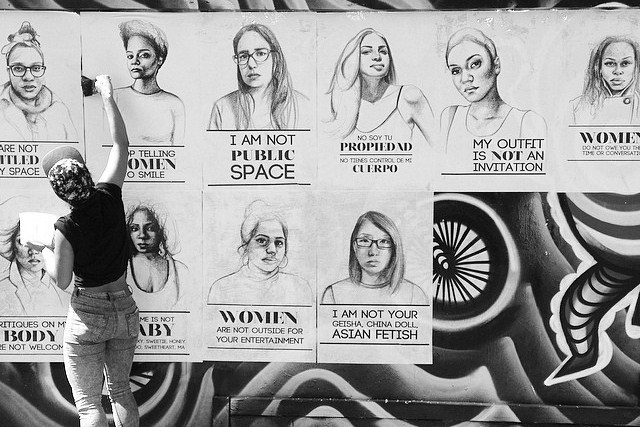 ARE NOT
TLED
Y SPACE
OP TELLING
OMEN
O SMILE
I AM NOT
PUBLIC
SPACE
NO SOY TU
PROPIEDAD
NO TIENES CONTROL DE MI
CUERPO
MY OUTFIT
IS NOT AN
INVITATION
WOMEN
DO NOT OWE YOU TH
TIME OR CONVERSATI
RITIQUES ON M
BODY
RE NOT WELCOM
ME IS NOT
ABY
Y, SWEETIE, HONEY
OO, SWEETHEART, MA
WOMEN
ARE NOT OUTSIDE FOR
YOUR ENTERTAINMENT
I AM NOT YOUR
GEISHA, CHINA DOLL,
ASIAN FETISH